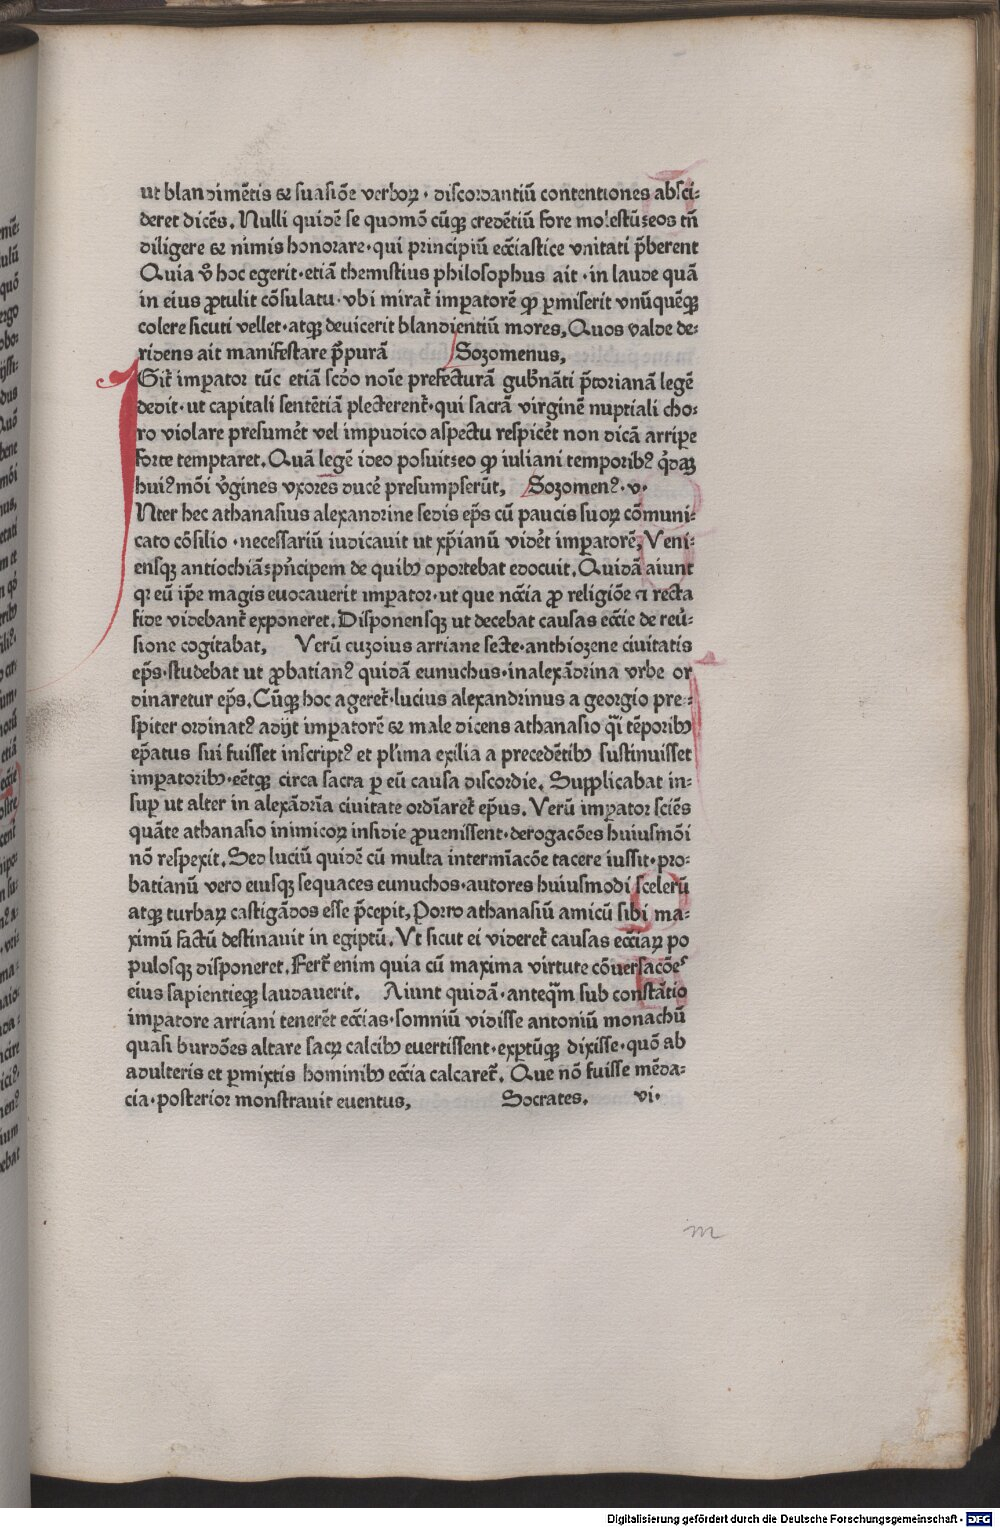 ut blandimẽtis & suasiõe verboꝝ · discordantiũ contentiones absci⸗
deret dicẽs. Nulli quidẽ se quomõ cũqꝫ credẽtiũ fore molestũ⸗eos tñ
diligere & nimis honorare·qui principiũ ecc̃iastice vnitati p̃berent
Quia v̾o hoc egerit·etiã themistius philosophus ait·in laude quã
in eius ꝓtulit cõsulatu·vbi mirat̃ imꝑatorẽ qꝙ ꝑmiserit vnũquẽqꝫ
colere sicuti vellet·atqꝫ deuicerit blandientiũ mores, Quos valde de⸗
ridens ait manifestare p̃purã Sozomenus,
Git̃ imꝑator tũc etiã scd̃o noĩe prefecturã gub̾nãti p̃torianã legẽ
dedit·ut capitali sentẽtiã plecterent̃·qui sacrã virginẽ nuptiali cho⸗
ro violare presumẽt vel impudico aspectu respicẽt non dicã arriꝑe
forte temptaret. Quã legẽ ideo posuit⸗eo ꝙ iuliani temporibꝰ q̃daꝫ
huiꝰmõi v̾gines vxores ducẽ presumpserũt, Sozomenꝰ·v·
Nter hec athanasius alexandrine sedis ep̃s cũ paucis suoꝝ cõmuni⸗
cato cõsilio·necessariũ iudicauit ut xp̃ianũ vidẽt imꝑatorẽ, Veni⸗
ensqꝫ antiochiã⸗pñcipem de quibꝰ oportebat edocuit. Quidã aiunt
qꝛ eũ ip̃e magis euocauerit imꝑator·ut que nc̃cia ꝓ religiõe a recta
fide videbant̃ exponeret. Disponensqꝫ ut decebat causas ecc̃ie de reũ⸗
sione cogitabat, Verũ cuzoius arriane secte·anthiozene ciuitatis
ep̃s·studebat ut ꝓbatianꝰ quidã eunuchus·inalexãdrina vrbe or
dinaretur ep̃s. Cũqꝫ hoc ageret̃·lucius alexandrinus a georgio pre⸗
spiter ordinatꝰ adijt imꝑatorẽ & male dicens athanasio qͥ tẽporibꝰ
ep̃atus sui fuisset inscriptꝰ et pl̃ima exilia a precedẽtibꝰ sustinuisset
imꝑatoribꝰ·eẽtqꝫ circa sacra ꝑ eũ causa discordie. Supplicabat in⸗
suꝑ ut alter in alexãdrĩa ciuitate ordĩaret̃ ep̃us. Verũ imꝑator sciẽs
quãte athanasio inimicoꝝ insidie ꝓuenissent·derogacões huiusmõi
nõ respexit. Sed luciũ quidẽ cũ multa intermĩacõe tacere iussit·pro⸗
batianũ vero eiusqꝫ sequaces eunuchos·autores huiusmodi scelerũ
atqꝫ turbaꝝ castigãdos esse p̃cepit, Porro athanasiũ amicũ sibi ma⸗
ximũ factũ destinauit in egiptũ. Vt sicut ei videret̃ causas ecc̃iaꝝ po
pulosqꝫ disponeret. Fert̃ enim quia cũ maxima virtute cõuersacõeˢ
eius sapientieqꝫ laudauerit. Aiunt quidã·anteq̃m sub constãtio
imꝑatore arriani tenerẽt ecc̃ias·somniũ vidisse antoniũ monachũ
quasi burdões altare sacꝝ calcibꝰ euertissent·exꝑtũqꝫ dixisse·quõ ab
adulteris et ꝑmixtis hominibꝰ ecc̃ia calcaret̃. Que nõ fuisse mẽda⸗
cia·posterior monstrauit euentus, Socrates. vi·
m
Digitalisierung gefördert durch die Deutsche Forschungsgemeinschaft - DFG